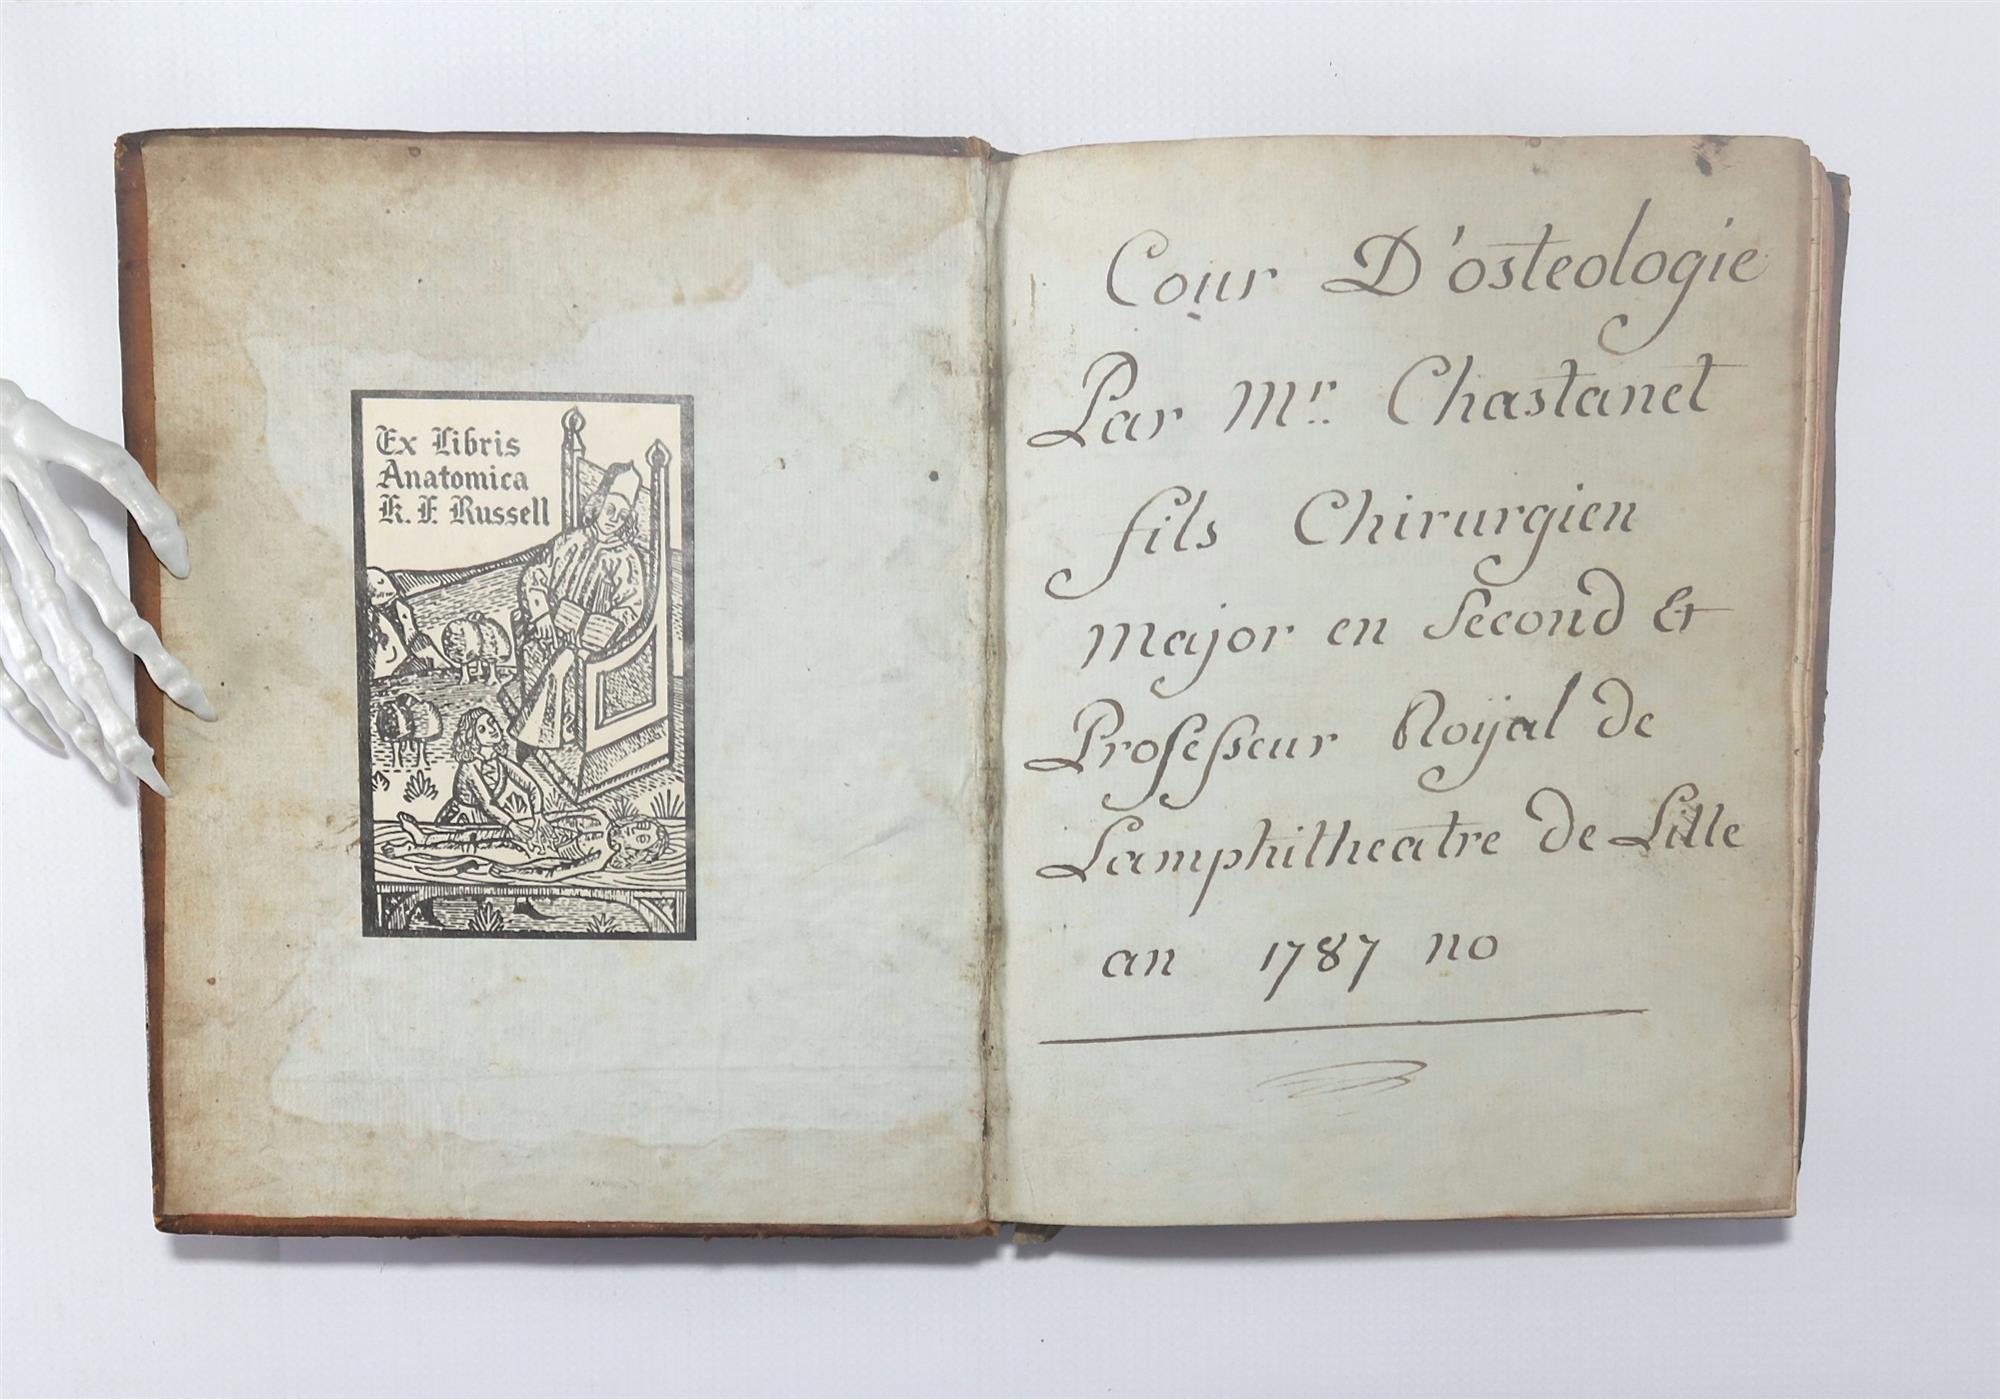 Ex Libris
Anatomica
K. F. Russell
Cour D'osteologie
Par Mr. Chastanet
fils Chirurgien
Major en Second &
Professeur Royal de
Lamphitheatre de Lille
an 1787 no